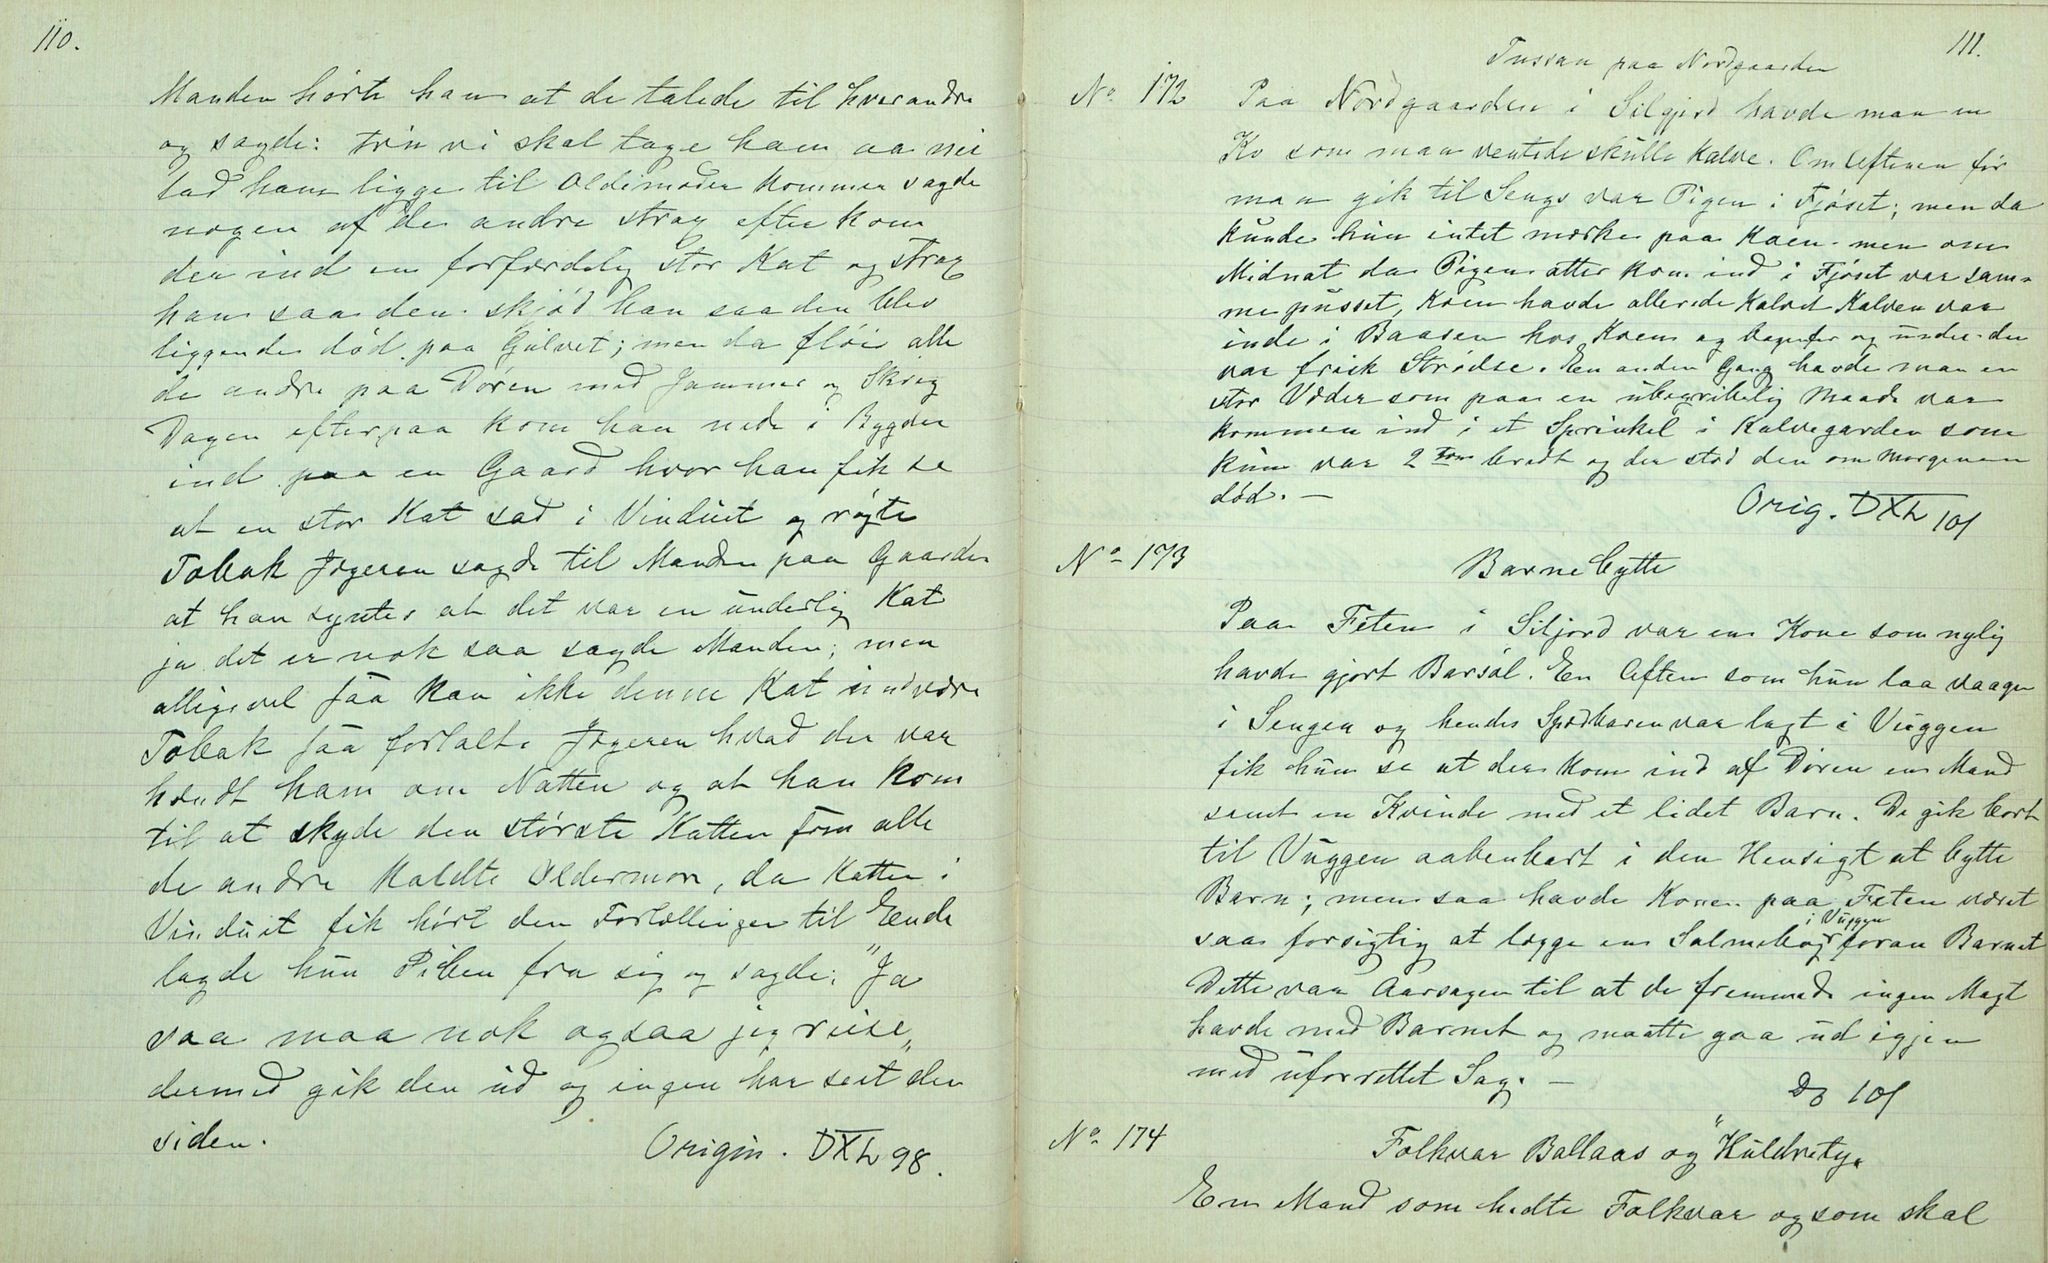 110.
Manden hørte han at de talede til hverandre
og sagde: trin vi skal tage ham aa nei
lad ham ligge til Oldimoder kommer sagde
nogen af de andre strax efter kom
der ind en forfærdelig stor Kat og strax
han saa den skjød han saa den blev
liggende død paa Gulvet; men da fløi alle
de andre paa Døren med Jammer og Skrig
Dagen efterpaa kom han nede i Bygden
ind paa en Gaard hvor han fik se
at en stor Kat sad i Vinduet og røgte
Tobak Jægeren sagde til Manden paa Gaarden
at han syntes at det var en underlig Kat
ja det er nok saa sagde Manden; men
alligevel saa kan ikke denne Kat undvære
Tobak saa fortalte Jægeren hvad der var
hændt ham om Natten og at han kom
til at skyde den største Katten som alle
de andre kaldte Oldermor, da Katten i
Vinduet fik hørt den Fortællingen til Ende
lagde hun Piben fra sig og sagde: "Ja
saa maa nok ogsaa jeg reise"
dermed gik den ud og ingen har seet den
siden.
Origin. DXL 98.
111.
Tussan paa Nordgaarden
No 172 Paa Nordgaarden i Silgjord havde man en
Ko som man ventede skulle kalve. Om Aftenen før
man gik til Sengs var Pigen i Fjøset; men da
kunde hun intet mærke paa Koen men om
Midnat da Pigen atter kom ind i Fjøset var sam-
me pusset, Koen havde allerede kalvet Kalven var
inde i Baasen hos Koen og bagenfor og under den
var frisk Strødse. En anden Gang havde man en
stor Væder som paa en ubegribelig Maade var
kommen ind i et Sprinkel i Kalvegarden som
kun var 2 Tom bredt og der stod den om Morgenen
død. —
Orig. DXL 101
No 173
Barnebytte
Paa Feten i Siljord var en Kone som nylig
havde gjort Barsøl. En Aften som hun laa vaagen
i Sengen og hendes Spædbarn var lagt i Vuggen
fik hun se at der kom ind af Døren en Mand
samt en Kvinde med et lidet Barn. De gik bort
til Vuggen aabenbart i den Hensigt at bytte
Barn; men saa havde Konen paa Feten været
saa forsigtig at lægge en Salmebog i Vuggen foran Barnet
Dette var Aarsagen til at de fremmede ingen Magt
havde med Barnet og maatte gaa ud igjen
med uforrettet Sag. —
Do 101
No 174
Folkvar Ballaas og "Huldrety.
En Mand som hedte Folkvar og som skal